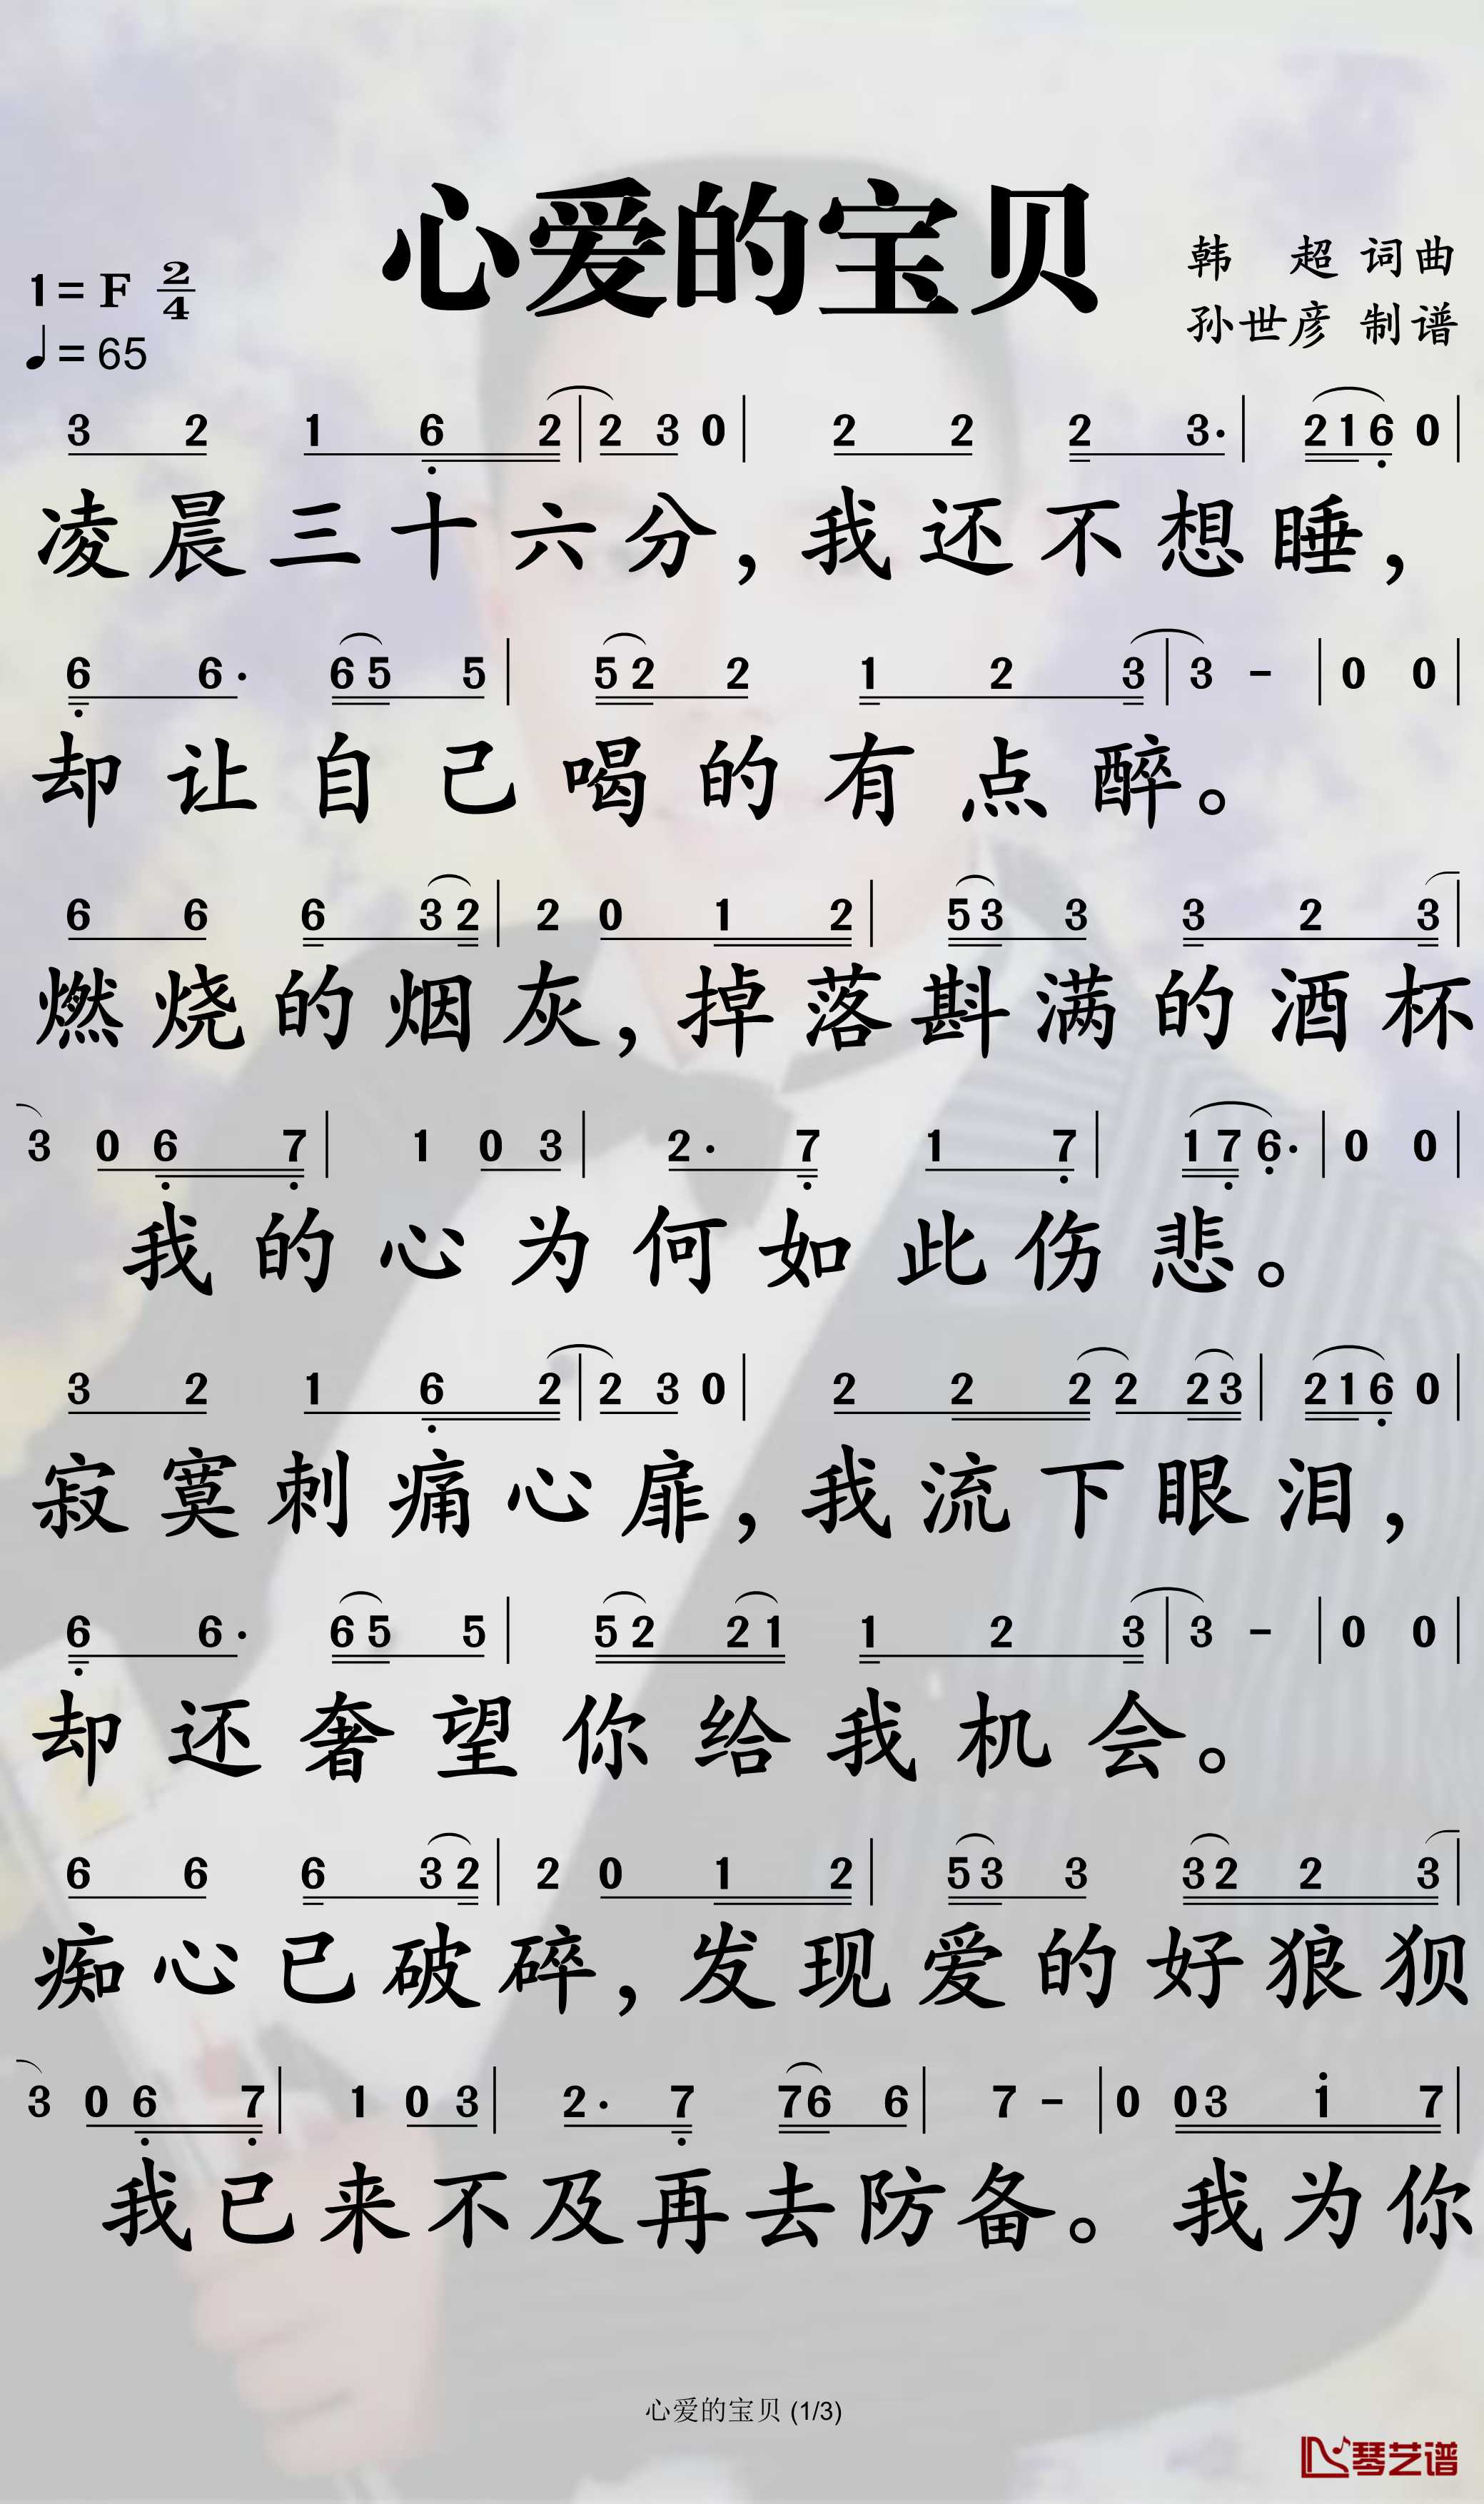 心爱的宝贝
韩 超 词曲
孙世彦 制谱
1= F 2/4
♩= 65
3 2 1 6 2 | 2 3 0 | 2 2 2 3· | 2 1 6 0 |
凌晨三十六分，我还不想睡，
6 6· 6 5 5 | 5 2 2 1 2 3 | 3 - | 0 0 |
却让自己喝的有点醉。
6 6 6 3 2 | 2 0 1 2 | 5 3 3 3 2 3 |
燃烧的烟灰，掉落斟满的酒杯
3 0 6 7 | 1 0 3 | 2· 7 1 7 | 1 7 6· | 0 0 |
我的心为何如此伤悲。
3 2 1 6 2 | 2 3 0 | 2 2 2 2 2 3 | 2 1 6 0 |
寂寞刺痛心扉，我流下眼泪，
6 6· 6 5 5 | 5 2 2 1 1 2 3 | 3 - | 0 0 |
却还奢望你给我机会。
6 6 6 3 2 | 2 0 1 2 | 5 3 3 3 2 2 3 |
痴心已破碎，发现爱的好狼狈
3 0 6 7 | 1 0 3 | 2· 7 7 6 6 | 7 - | 0 0 3 i 7 |
我已来不及再去防备。我为你
心爱的宝贝 (1/3)
琴艺谱